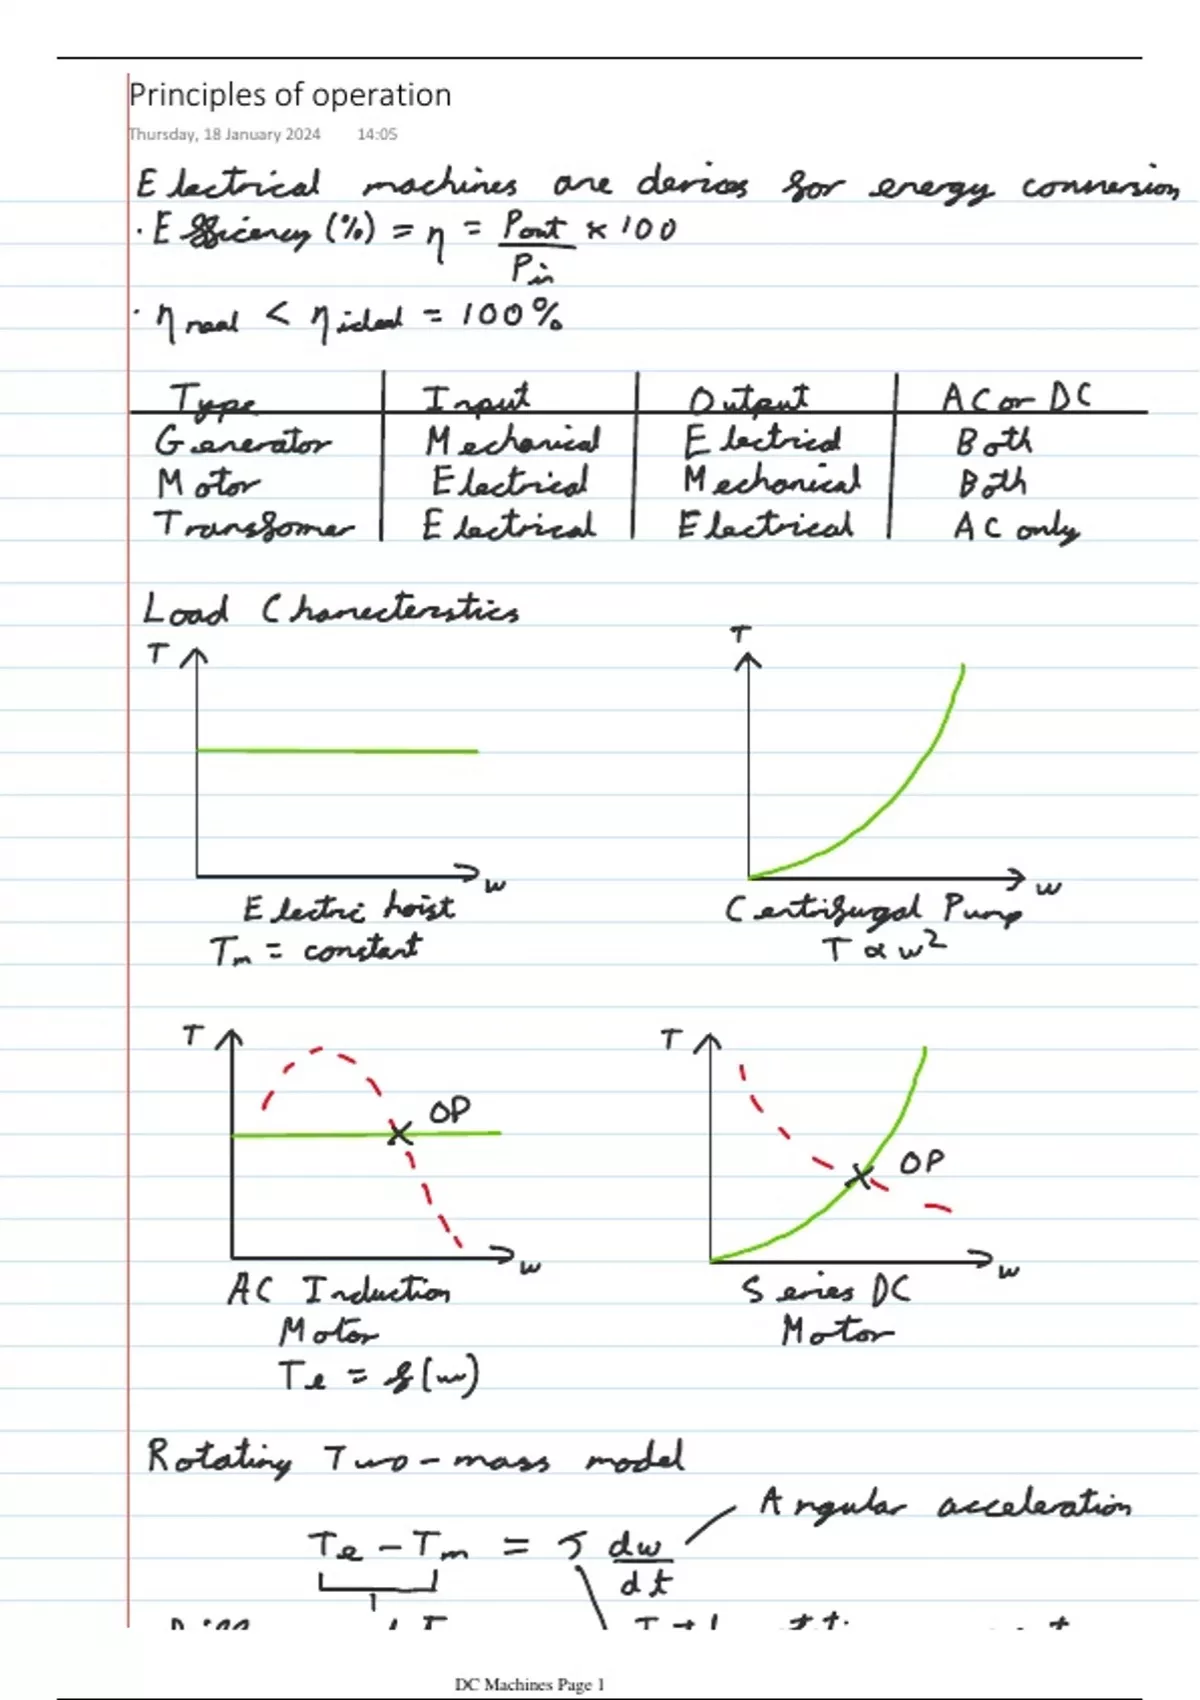 Principles of operation
Thursday, 18 January 2024 14:05
Electrical machines are devices for energy conversion
· Efficiency (%) = η = Pout / Pin × 100
· ηreal < ηideal = 100%
Type Input Output AC or DC
Generator Mechanical Electrical Both
Motor Electrical Mechanical Both
Transfomer Electrical Electrical AC only
Load Charecterstics
T T
w w
Electric hoist Centrifugal Pump
Tm = constant T ∝ w²
T T
OP OP
w w
AC Induction Series DC
Motor Motor
Te = f(w)
Rotating Two-mass model
Angular acceleration
Te - Tm = J dw/dt
DC Machines Page 1